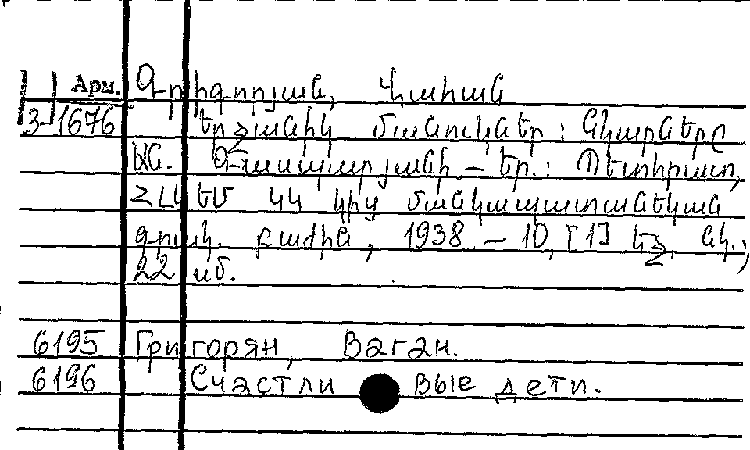 Арм. Գրիգորյան, Վահան
3-1676 Երջանիկ մանուկներ: Նկարները
Խ. Գասպարյանի – Եր.: Պետհրատ,
ՀԼԿԵՄ ԿԿ կից մանկապատանեկան
գրակ. բաժին, 1938. – 10, [1] եջ, նկ.;
22 սմ.
6195 Григорян, Ваган.
6196 Счастливые дети.